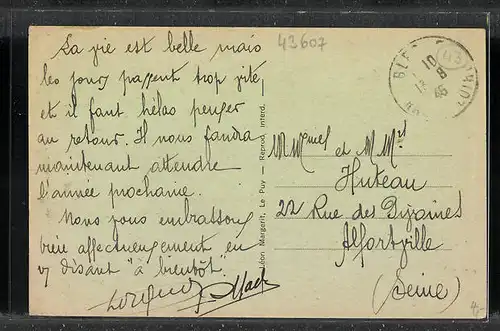 La vie est belle mais
les jours passent trop vite,
et il faut hélas penser
au retour. Il nous faudra
maintenant attendre
l'année prochaine.
Nous vous embrassons
bien affectueusement en
vs disant "à bientôt".
43607
Léon Margerit, Le Puy — Reprod. interd.
10
8
(43)
et M
Huteau
22 Rue des Dizaines
Alfortville
(Seine)